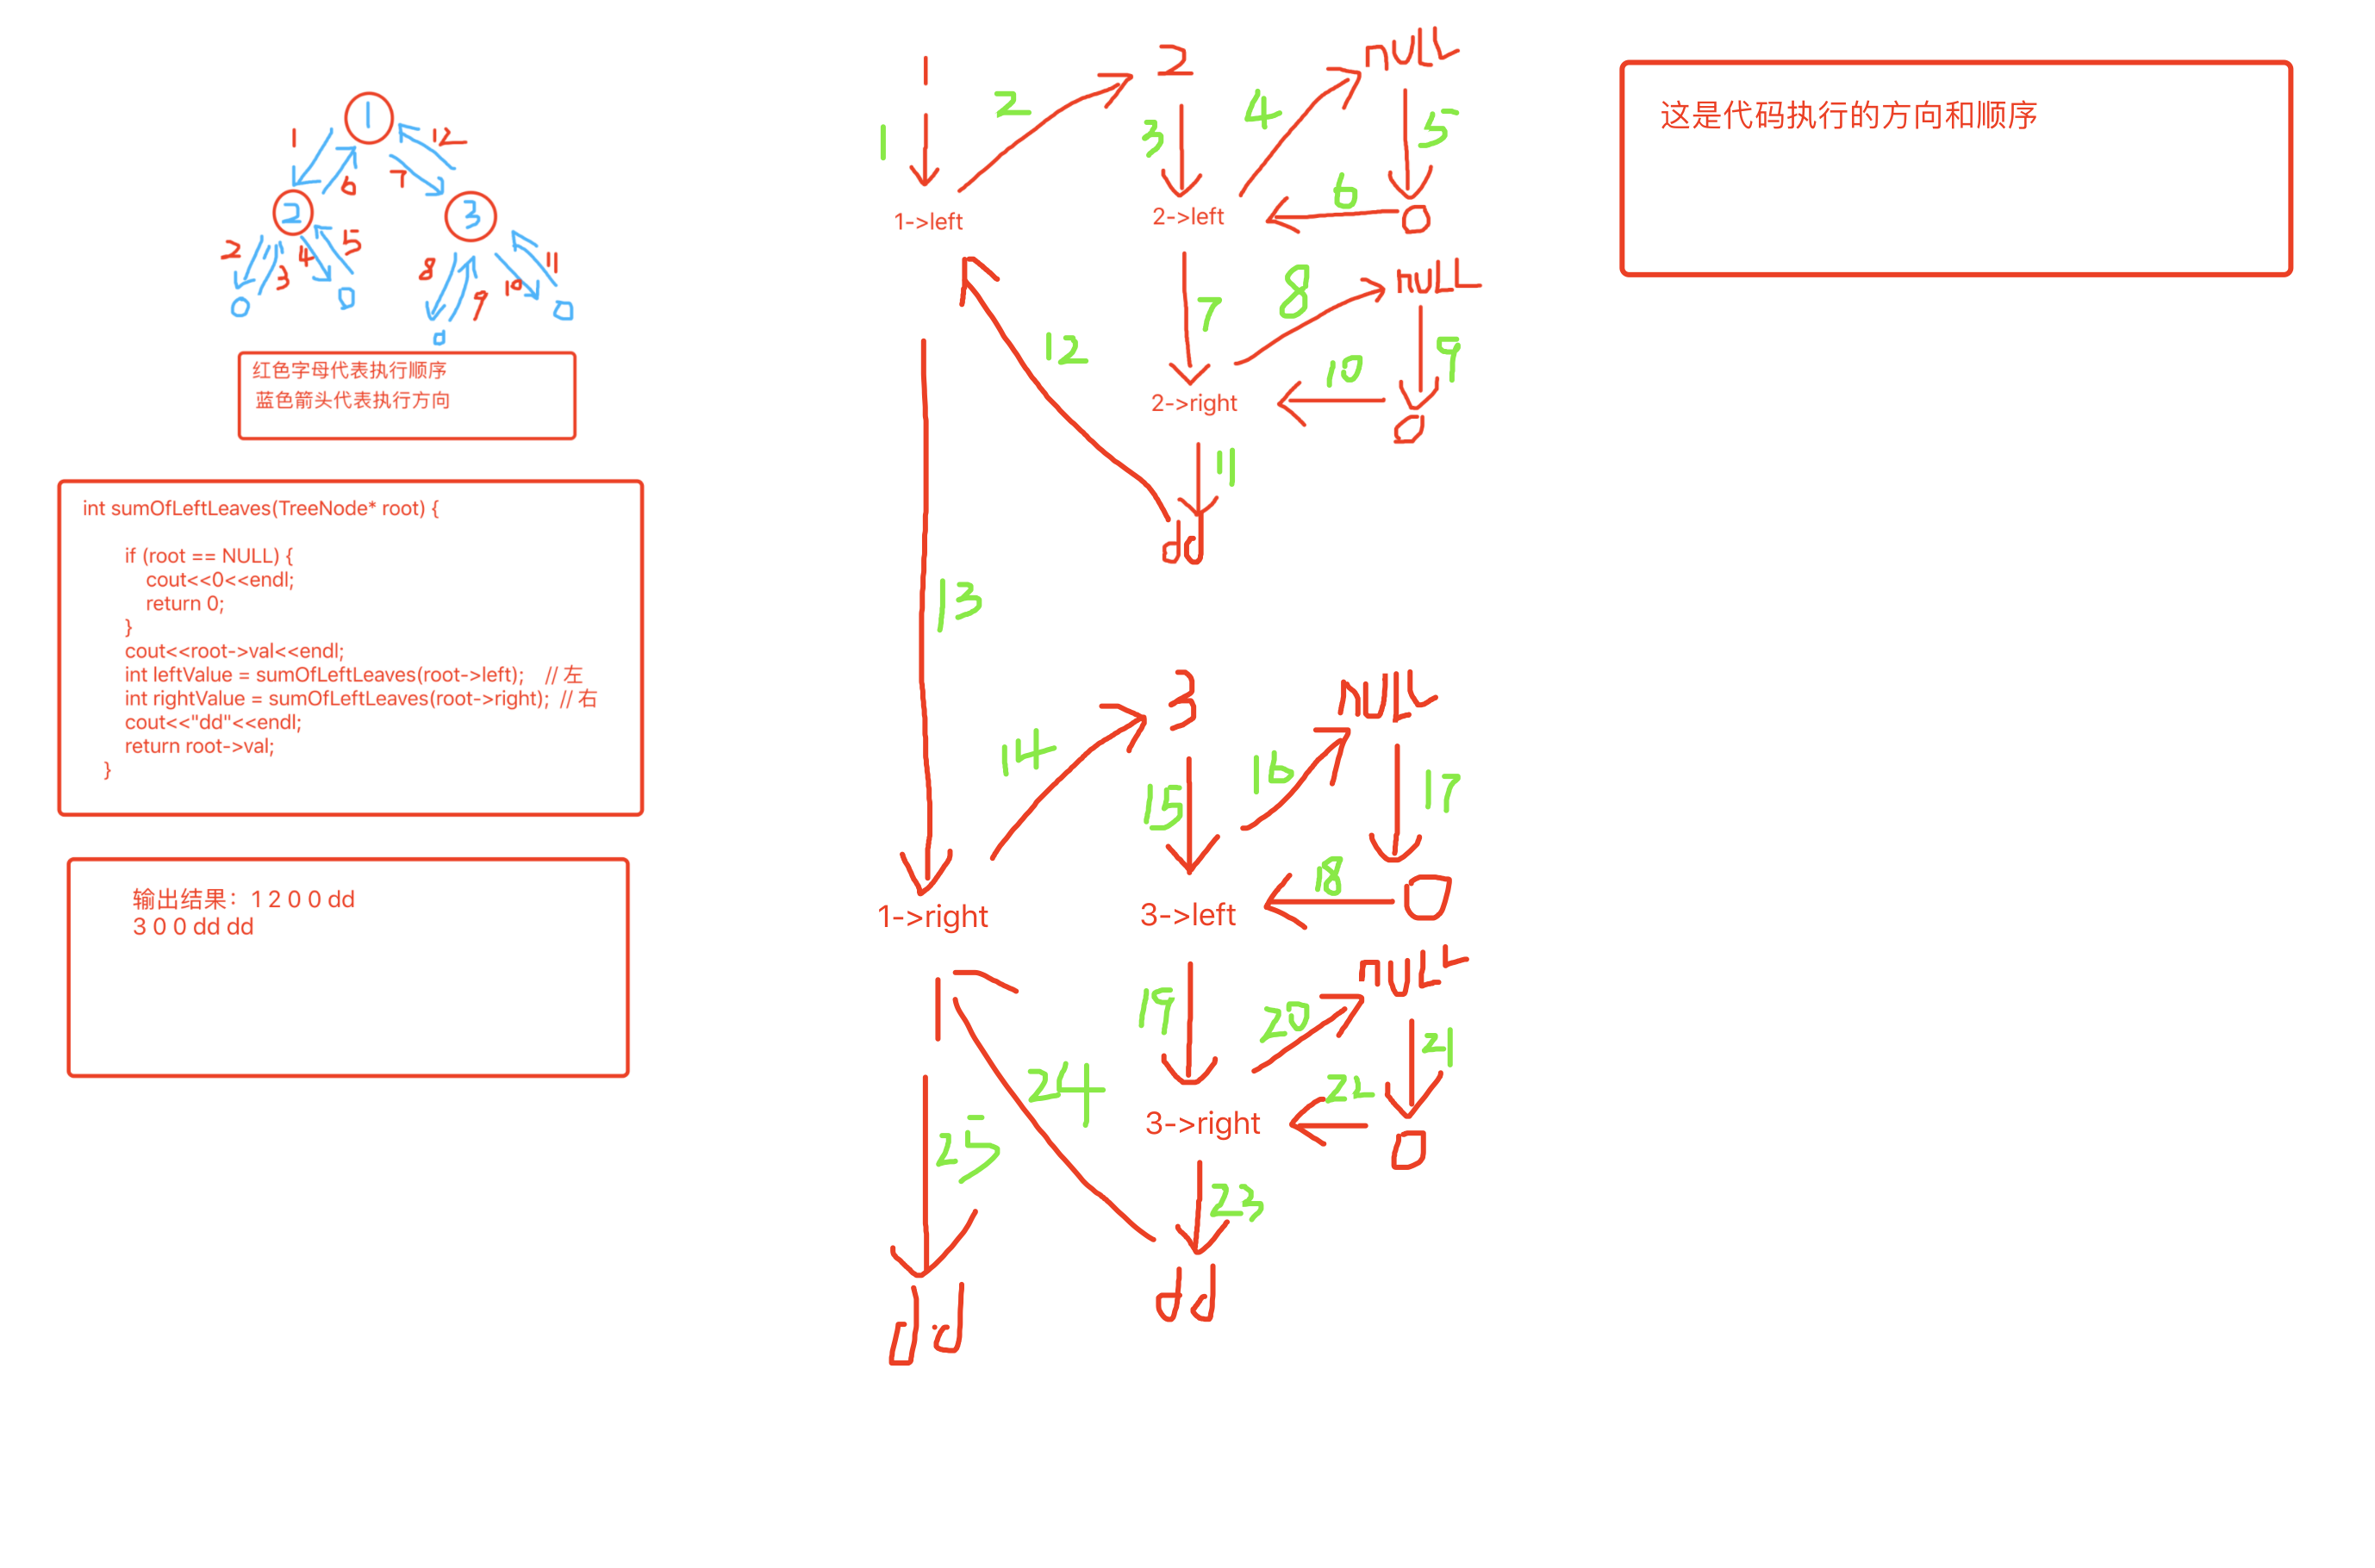 1
1
12
6
7
2
3
2
3
4
5
8
9
10
11
0
0
0
0
红色字母代表执行顺序
蓝色箭头代表执行方向
int sumOfLeftLeaves(TreeNode* root) {
if (root == NULL) {
cout<<0<<endl;
return 0;
}
cout<<root->val<<endl;
int leftValue = sumOfLeftLeaves(root->left);    // 左
int rightValue = sumOfLeftLeaves(root->right);  // 右
cout<<"dd"<<endl;
return root->val;
}
输出结果：1 2 0 0 dd
3 0 0 dd dd
1
2
null
1
2
3
4
5
1->left
2->left
6
0
7
8
null
12
2->right
10
9
0
11
dd
13
3
null
14
15
16
17
1->right
3->left
18
0
1
19
20
null
24
3->right
22
21
0
25
23
dd
dd
这是代码执行的方向和顺序